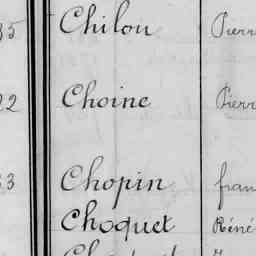 35 Chilou Pierr
22 Choine Pierr
33 Chopin fran
Choquet Réné